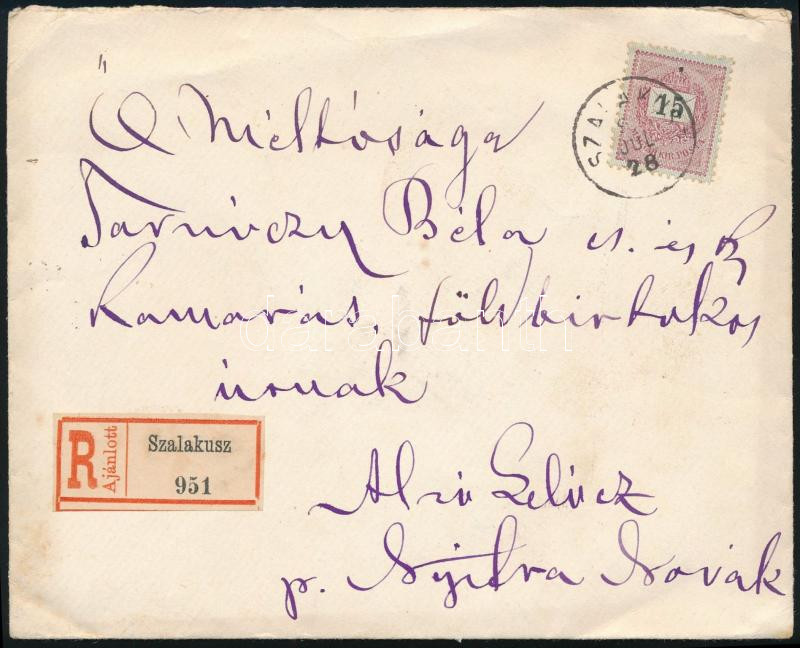 15
SZALAKUSZ
JUL
28
Ő Méltósága
Tarnóczy Béla cs. és k.
kamarás, földbirtokos
úrnak
R Ajánlott
Szalakusz
951
Alsó Lelócz
p. Nyitra Novák
darabanth